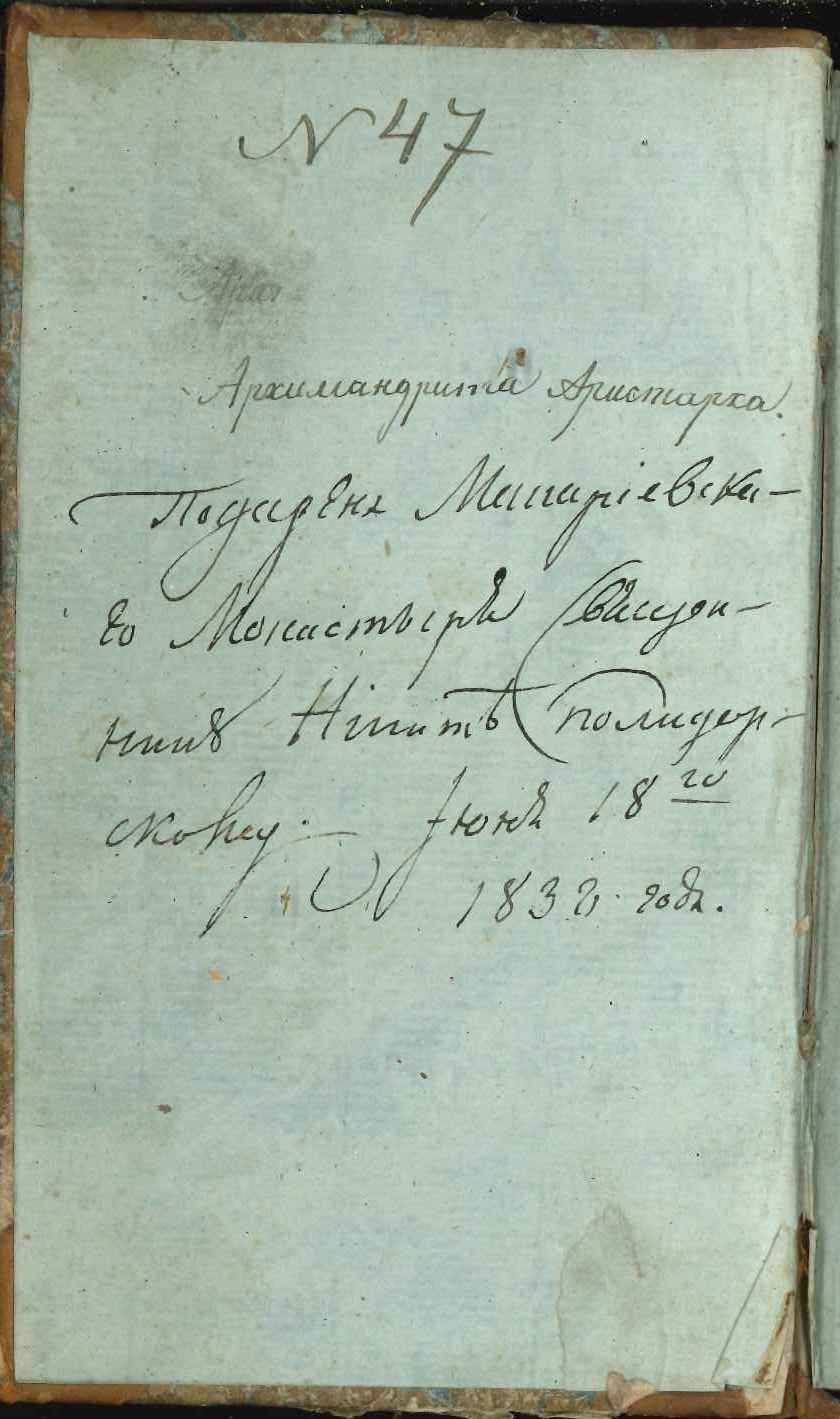 N 47
Архимандрита Аристарха.
Подаренъ Макаріевска-
го Монастыря Священ-
нику
скому. Іюня 18 го
183 года.